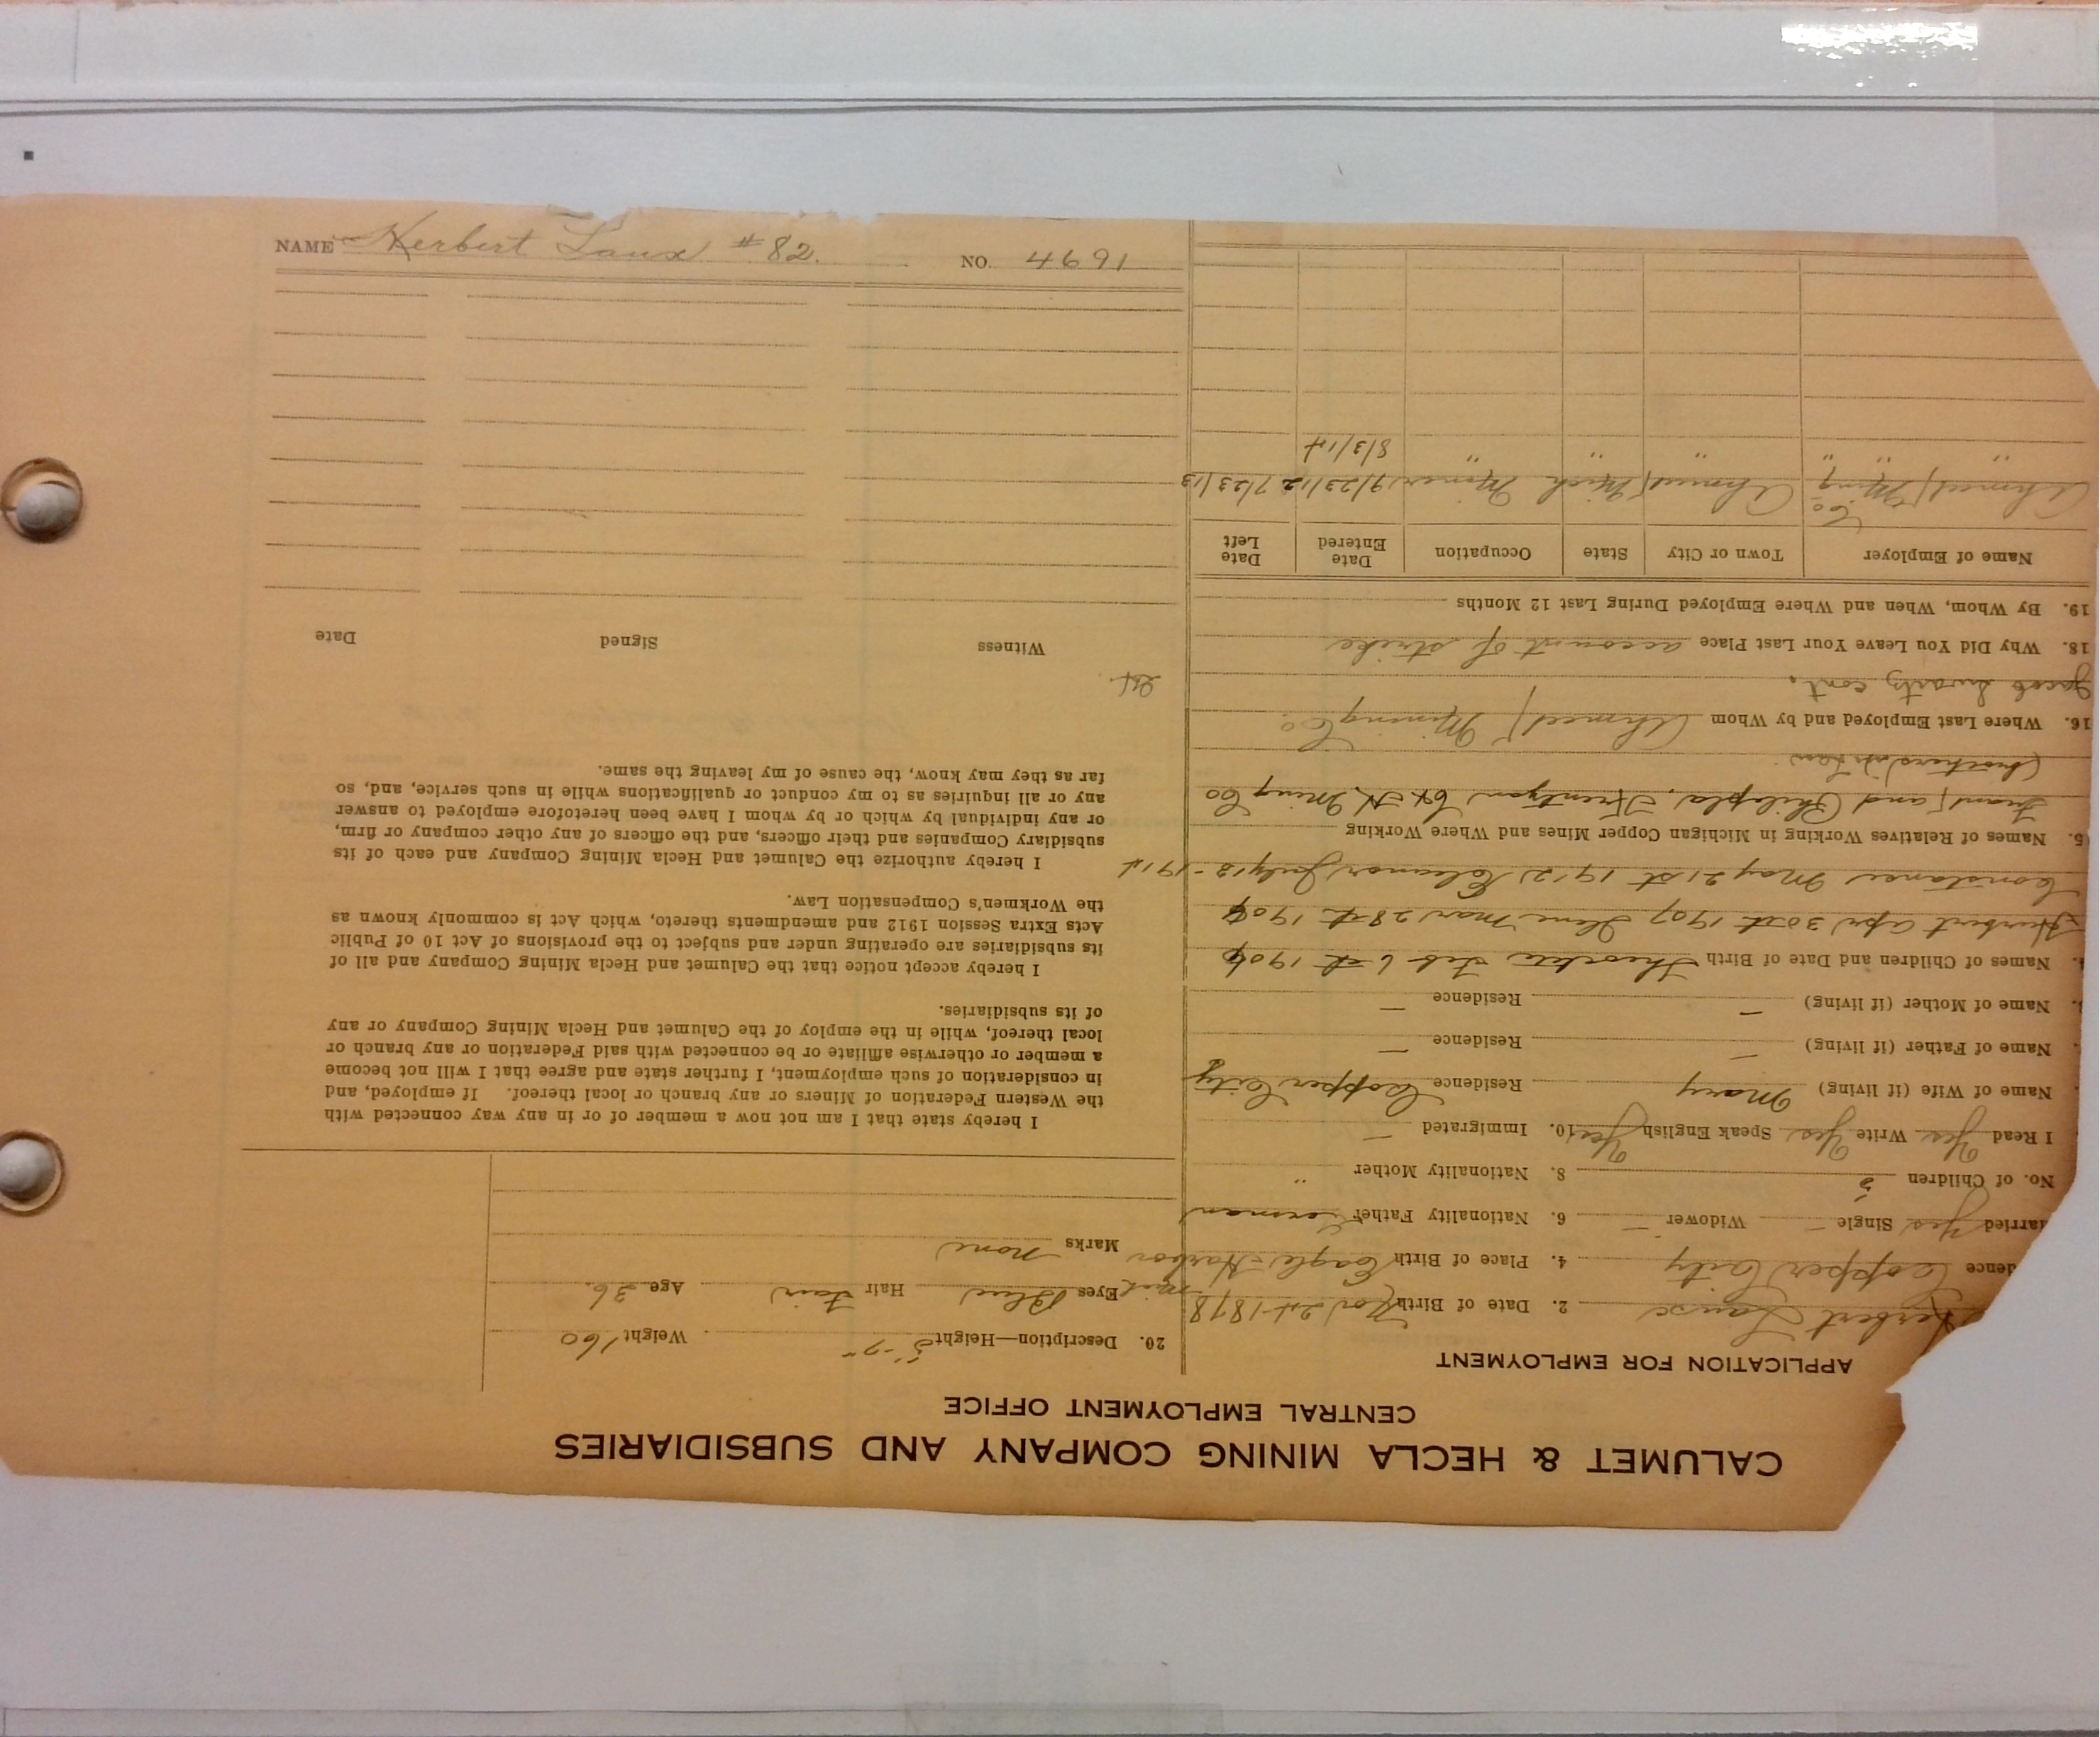 CALUMET & HECLA MINING COMPANY AND SUBSIDIARIES
CENTRAL EMPLOYMENT OFFICE
APPLICATION FOR EMPLOYMENT
Herbert Laux 2. Date of Birth Nov 21-1878
dence Copper City 4. Place of Birth Eagle Harbor Mich
arried Yes Single — Widower — 6. Nationality Father German
No. of Children 5 8. Nationality Mother "
I Read Yes Write Yes Speak English Yes 10. Immigrated —
Name of Wife (if living) Mary Residence Copper City
Name of Father (if living) — Residence —
Name of Mother (if living) — Residence —
Names of Children and Date of Birth Feb 6th
Herbert Apr 30th 1907 Mar 28th
Constance May 21st 1912 Eleanor July 13-1914
Names of Relatives Working in Michigan Copper Mines and Where Working
and C & H Ming Co
(brothers in law)
16. Where Last Employed and by Whom Ahmeek Mining Co.
Jacob cont.
18. Why Did You Leave Your Last Place account of strike
19. By Whom, When and Where Employed During Last 12 Months
Name of Employer Town or City State Occupation Date Entered Date Left
Ahmeek Ming Co Ahmeek Mich Miner 9/23/12 7/23/13
" " " " " " 8/3/14
20. Description—Height 5'-7" Weight 160
Eyes Blue Hair Fair Age 36
Marks None
I hereby state that I am not now a member of or in any way connected with
the Western Federation of Miners or any branch or local thereof. If employed, and
in consideration of such employment, I further state and agree that I will not become
a member or otherwise affiliate or be connected with said Federation or any branch or
local thereof, while in the employ of the Calumet and Hecla Mining Company or any
of its subsidiaries.
I hereby accept notice that the Calumet and Hecla Mining Company and all of
its subsidiaries are operating under and subject to the provisions of Act 10 of Public
Acts Extra Session 1912 and amendments thereto, which Act is commonly known as
the Workmen's Compensation Law.
I hereby authorize the Calumet and Hecla Mining Company and each of its
subsidiary Companies and their officers, and the officers of any other company or firm,
or any individual by which or by whom I have been heretofore employed to answer
any or all inquiries as to my conduct or qualifications while in such service, and, so
far as they may know, the cause of my leaving the same.
Witness Signed Date
NAME Herbert Laux #82. NO. 4691